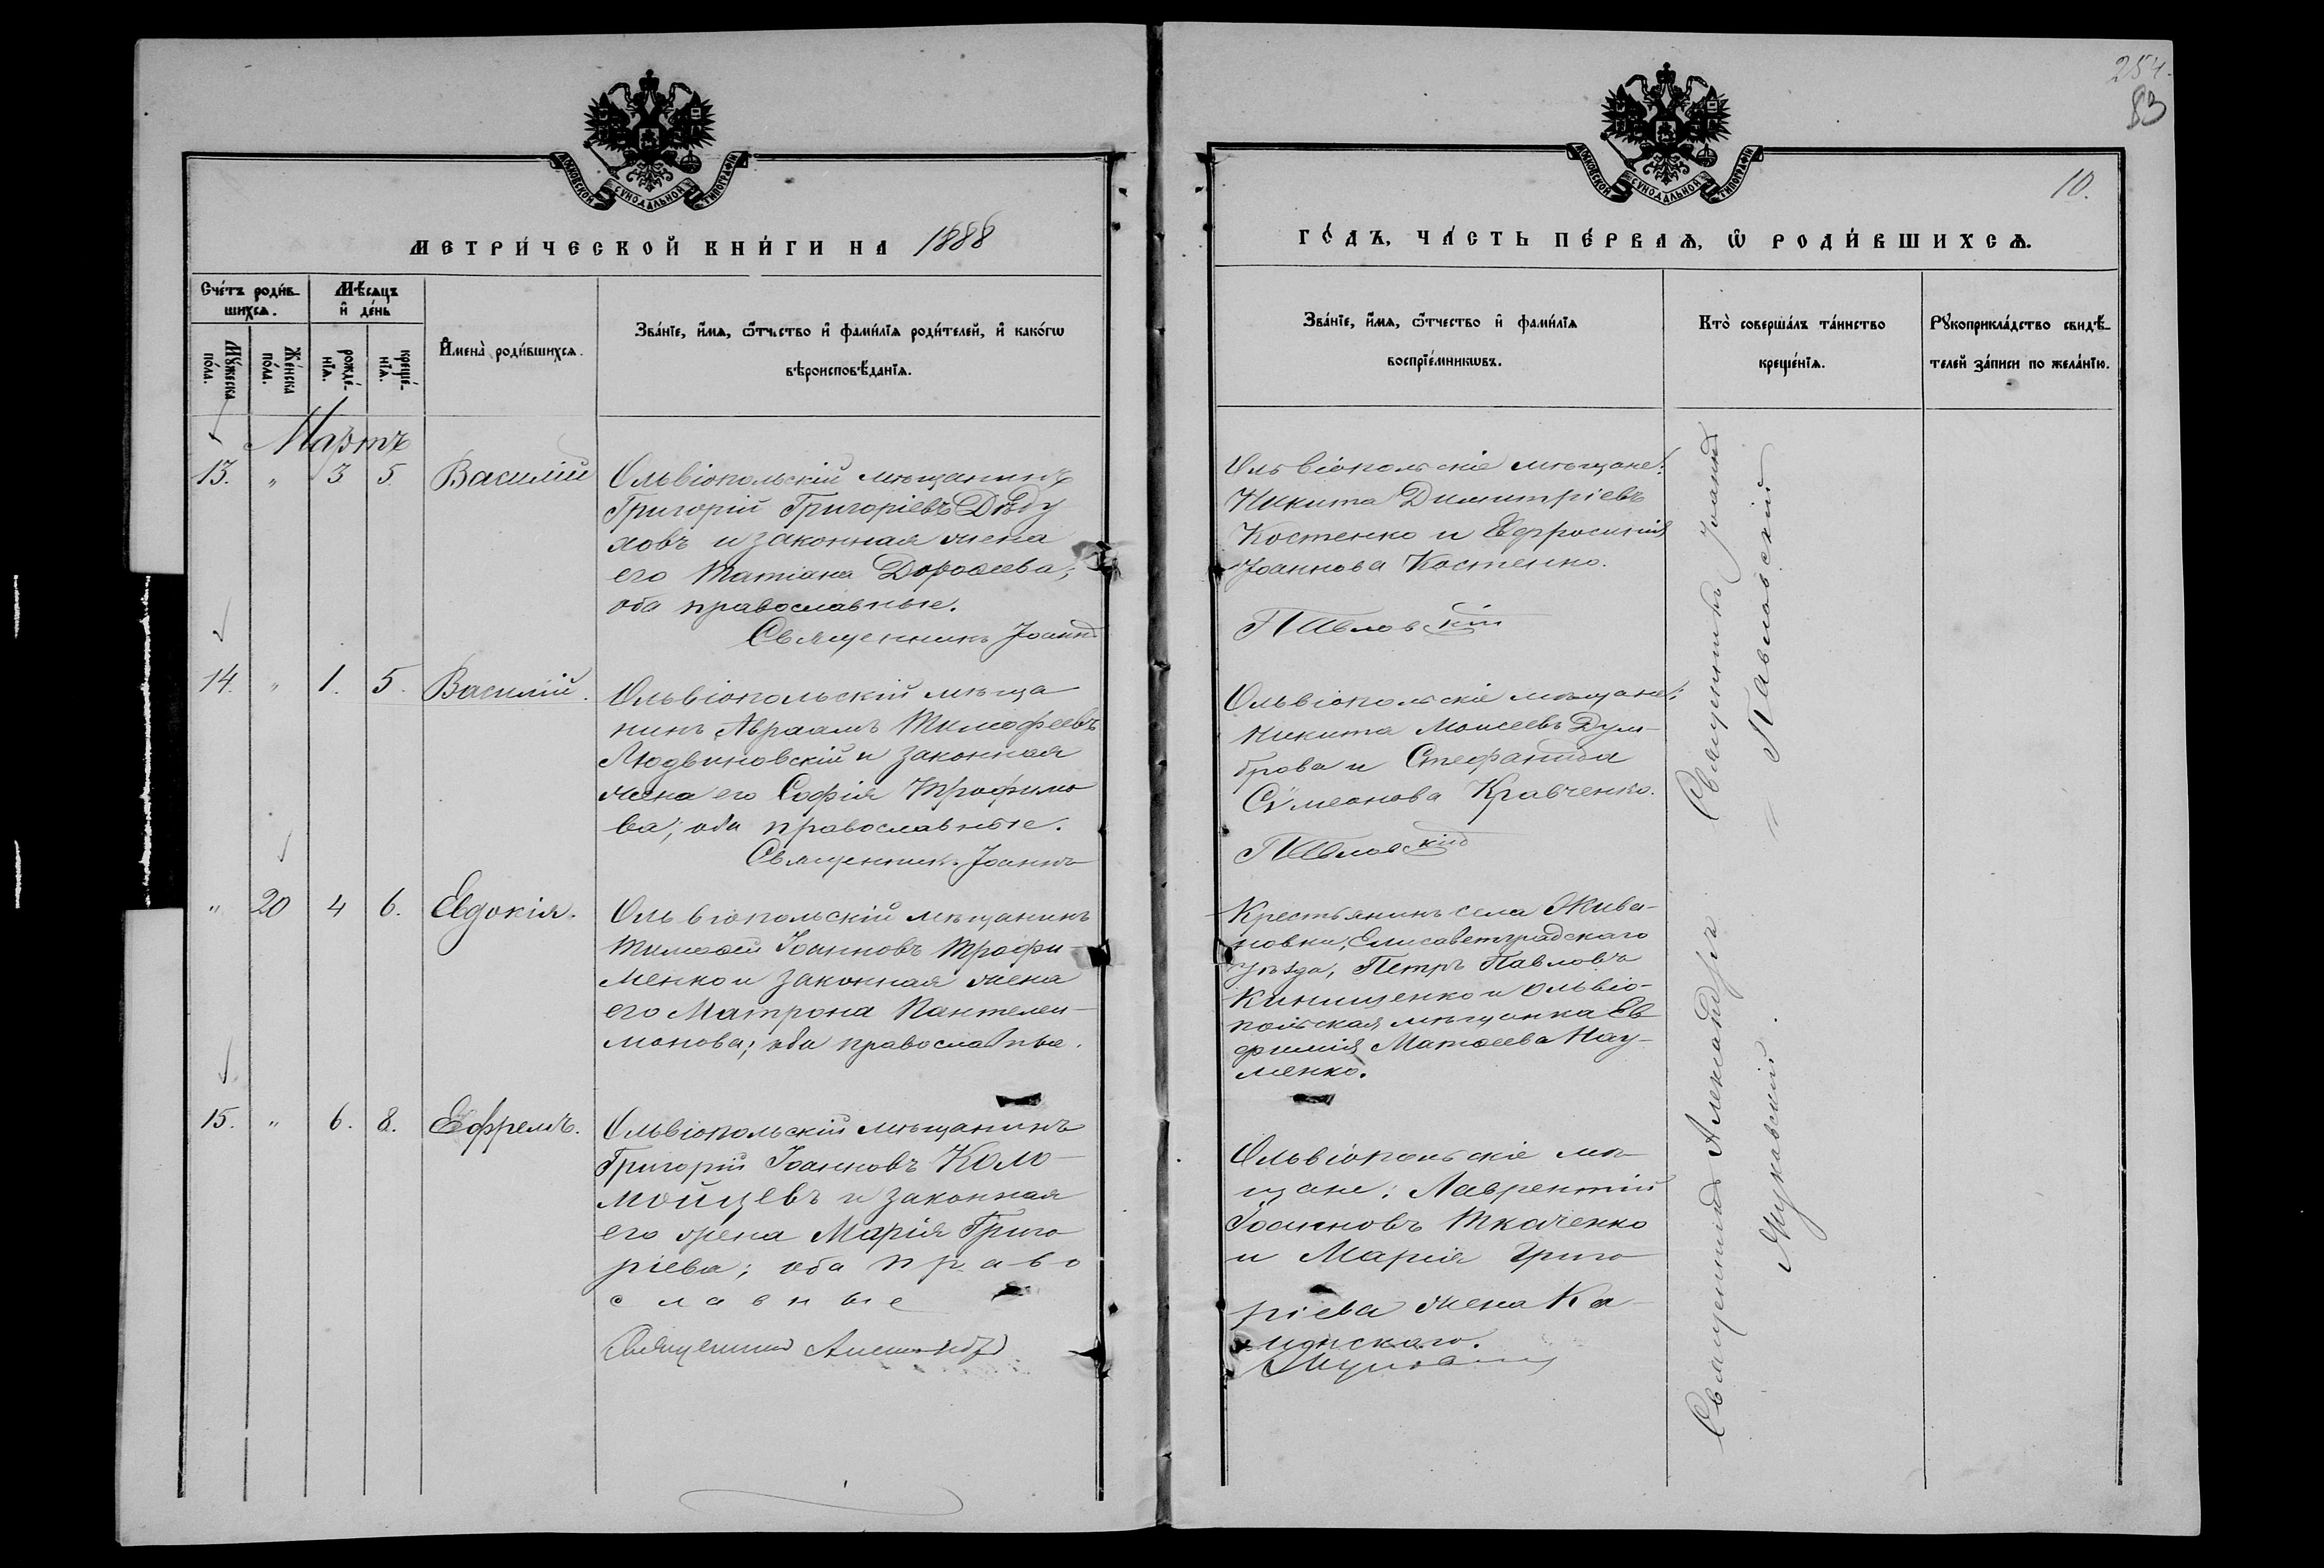 МОСКОВСКОЙ СѴНОДАЛЬНОЙ ТИПОГРАФІИ
МЕТРИ́ЧЕСКОЙ КНИ́ГИ НА 1888
Сче́тъ роди́в-
шихсѧ.
Мѣ́сяцъ
и҆ де́нь
Мꙋ́жеска
по́ла.
Же́нска
по́ла.
рожде́-
нїѧ.
креще́-
нїѧ.
И҆мена̀ роди́вшихсѧ.
Зва́нїе, и҆́мѧ, ѻ҆́тчество и҆ фами́лїѧ роди́телей, и҆ како́гѡ
вѣроисповѣ́данїѧ.
Мартъ
13. " 3 5. Василій
Ольвіопольскій мѣщанинъ
Григорій Григоріевъ Дѣду
ховъ и законная жена
его Татіана Дороѳеева;
оба православные.
Священникъ Іоаннъ
14. " 1. 5. Василій.
Ольвіопольскій мѣща
нинъ Авраамъ Тимофеевъ
Людвиновскій и законная
жена его Софія Трофимо
ва; оба православные.
Священникъ Іоаннъ
" 20 4 6. Евдокія.
Ольвіопольскій мѣщанинъ
Тимоѳей Іоанновъ Трофи-
менко и законная жена
его Матрона Пантелеи-
монова; оба православные.
15. " 6. 8. Ефремъ.
Ольвіопольскій мѣщанинъ
Григорій Іоанновъ Коло-
мойцевъ и законная
его жена Марія Григо
ріева; оба право
славные
Священникъ Александръ
254.
83
10.
МОСКОВСКОЙ СѴНОДАЛЬНОЙ ТИПОГРАФІИ
ГО́ДЪ, ЧА́СТЬ ПЕ́РВАѦ, Ѡ҆ РОДИ́ВШИХСѦ.
Зва́нїе, и҆́мѧ, ѻ҆́тчество и҆ фами́лїѧ
воспрїе́мникѡвъ.
Кто̀ соверша́лъ та́инство
креще́нїѧ.
Рꙋкоприкла́дство свидѣ́-
телей за́писи по жела́нїю.
Ольвіопольскіе мѣщане:
Никита Димитріевъ
Костенко и Ефросинія
Іоаннова Костенко.
Павловскій
Ольвіопольскіе мѣщане:
Никита Моисеевъ Дум-
брова и Стефанида
Сѵмеонова Кравченко.
Павловскій
Крестьянинъ села Жива-
новки, Елисаветградскаго
уѣзда, Петръ Павловъ
Кинищенко и Ольвіо-
польская мѣщанка Ев
фимія Матѳеева Нау-
менко.
Ольвіопольскіе мѣ-
щане: Лаврентій
Іоанновъ Ткаченко
и Марія Григо
ріева жена Ка-
минскаго.
Священникъ Іоаннъ
Павловскій
Священникъ Александръ